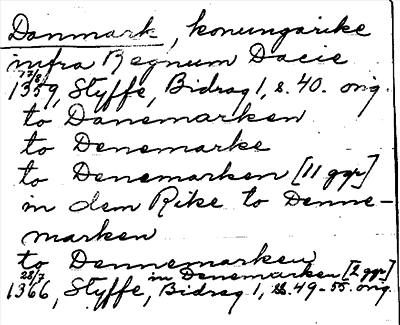 Danmark, konungarike
infra Regnum Dacie
13/8
1359, Styffe, Bidrag 1, s. 40. orig.
to Danemarken
to Denemarke
to Denemarken [11 ggr]
in dem Rike to Denne-
marken
to Dennemarken
in Denemarken [2 ggr]
28/7
1366, Styffe, Bidrag 1, s. 49-55. orig.